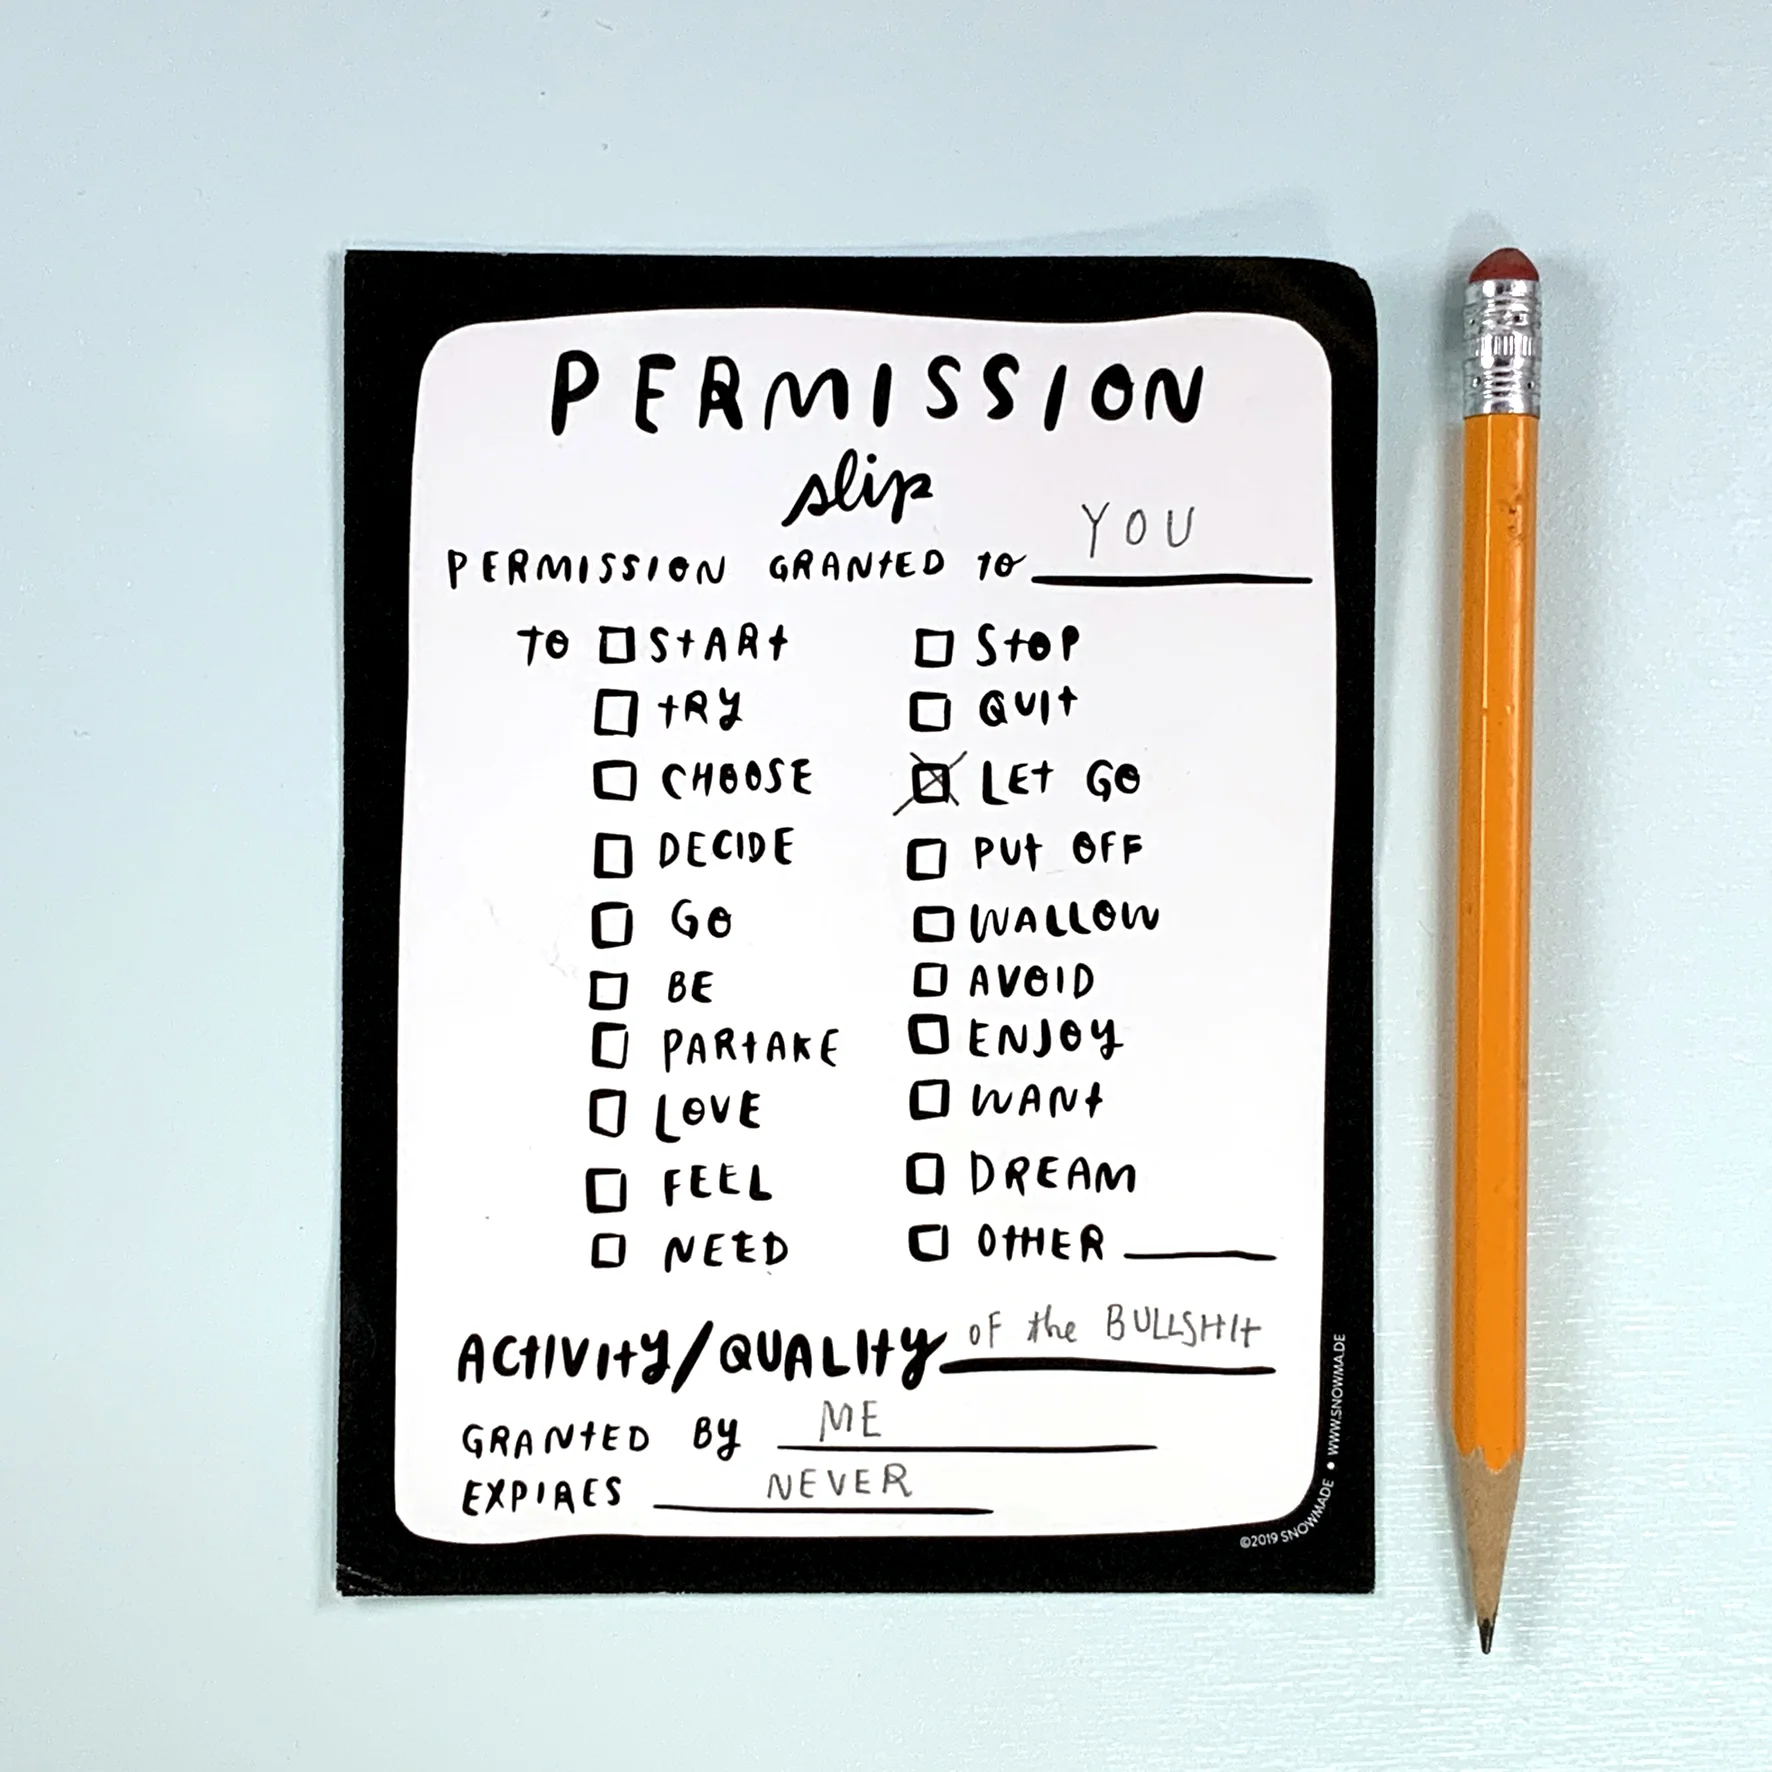 PERMISSION
slip
PERMISSION GRANTED TO YOU
TO START STOP
TRY QUIT
CHOOSE LET GO
DECIDE PUT OFF
GO WALLOW
BE AVOID
PARTAKE ENJOY
LOVE WANT
FEEL DREAM
NEED OTHER
ACTIVITY/QUALITY OF the BULLSHIT
GRANTED BY ME
EXPIRES NEVER
©2019 SNOWMADE • WWW.SNOWMA.DE